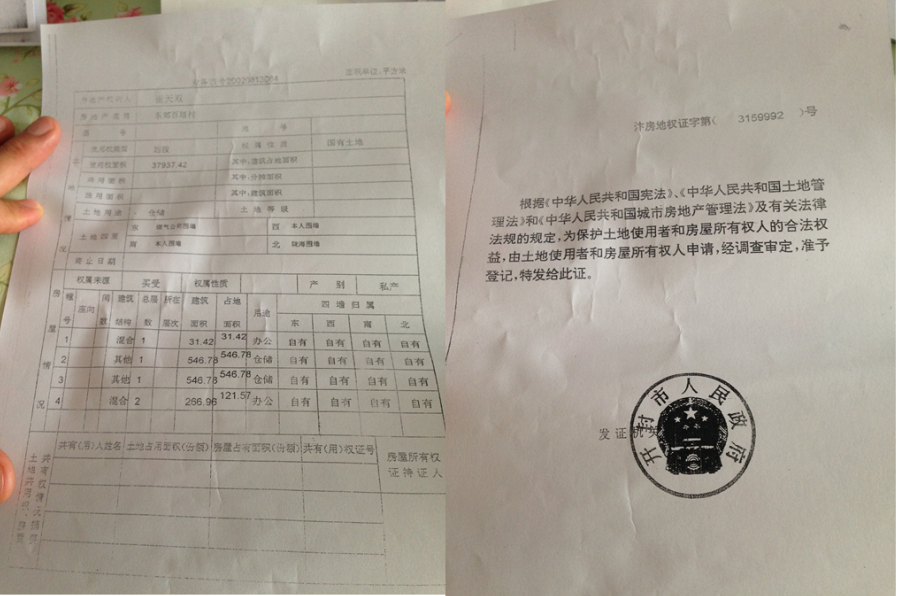 面积单位:平方米
房地产权利人
房地产坐落
图号
地号
使用权类型 划拨
权属性质 国有土地
使用权面积 37937.42
其中:建筑占地面积
共用面积
其中:分摊面积
其中:建筑面积
土地用途 仓储
土地等级
土地四至
东
西 本人围墙
南 本人围墙
北
终止日期
房屋情况
权属来源 买受 权属性质 产别 私产
幢号 座向 间数 建筑结构 总层数 所在层次 建筑面积 占地面积 用途 四墙归属
东 西 南 北
1 混合 1 31.42 31.42 办公 自有 自有 自有 自有
2 其他 1 546.78 546.78 仓储 自有 自有 自有 自有
3 其他 1 546.78 546.78 仓储 自有 自有 自有 自有
4 混合 2 266.96 121.57 办公 自有 自有 自有 自有
共有(用)人姓名 土地占用面积(份额) 房屋占有面积(份额) 共有(用)权证号
房屋所有权
证持证人
汴房地权证字第( 3159992 )号
根据《中华人民共和国宪法》、《中华人民共和国土地管
理法》和《中华人民共和国城市房地产管理法》及有关法律
法规的规定,为保护土地使用者和房屋所有权人的合法权
益,由土地使用者和房屋所有权人申请,经调查审定,准予
登记,特发给此证。
发证机关
开封市人民政府